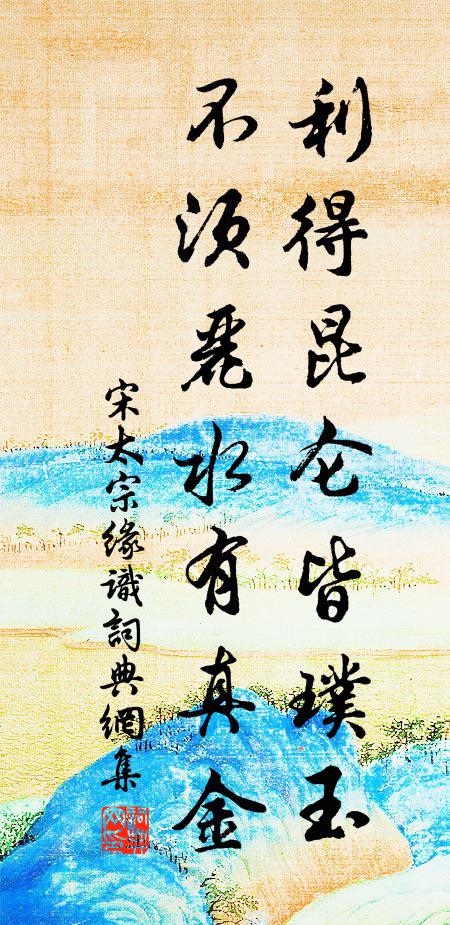 利得昆仑皆璞玉
不须丽水有真金
宋太宗缘識詞典網集